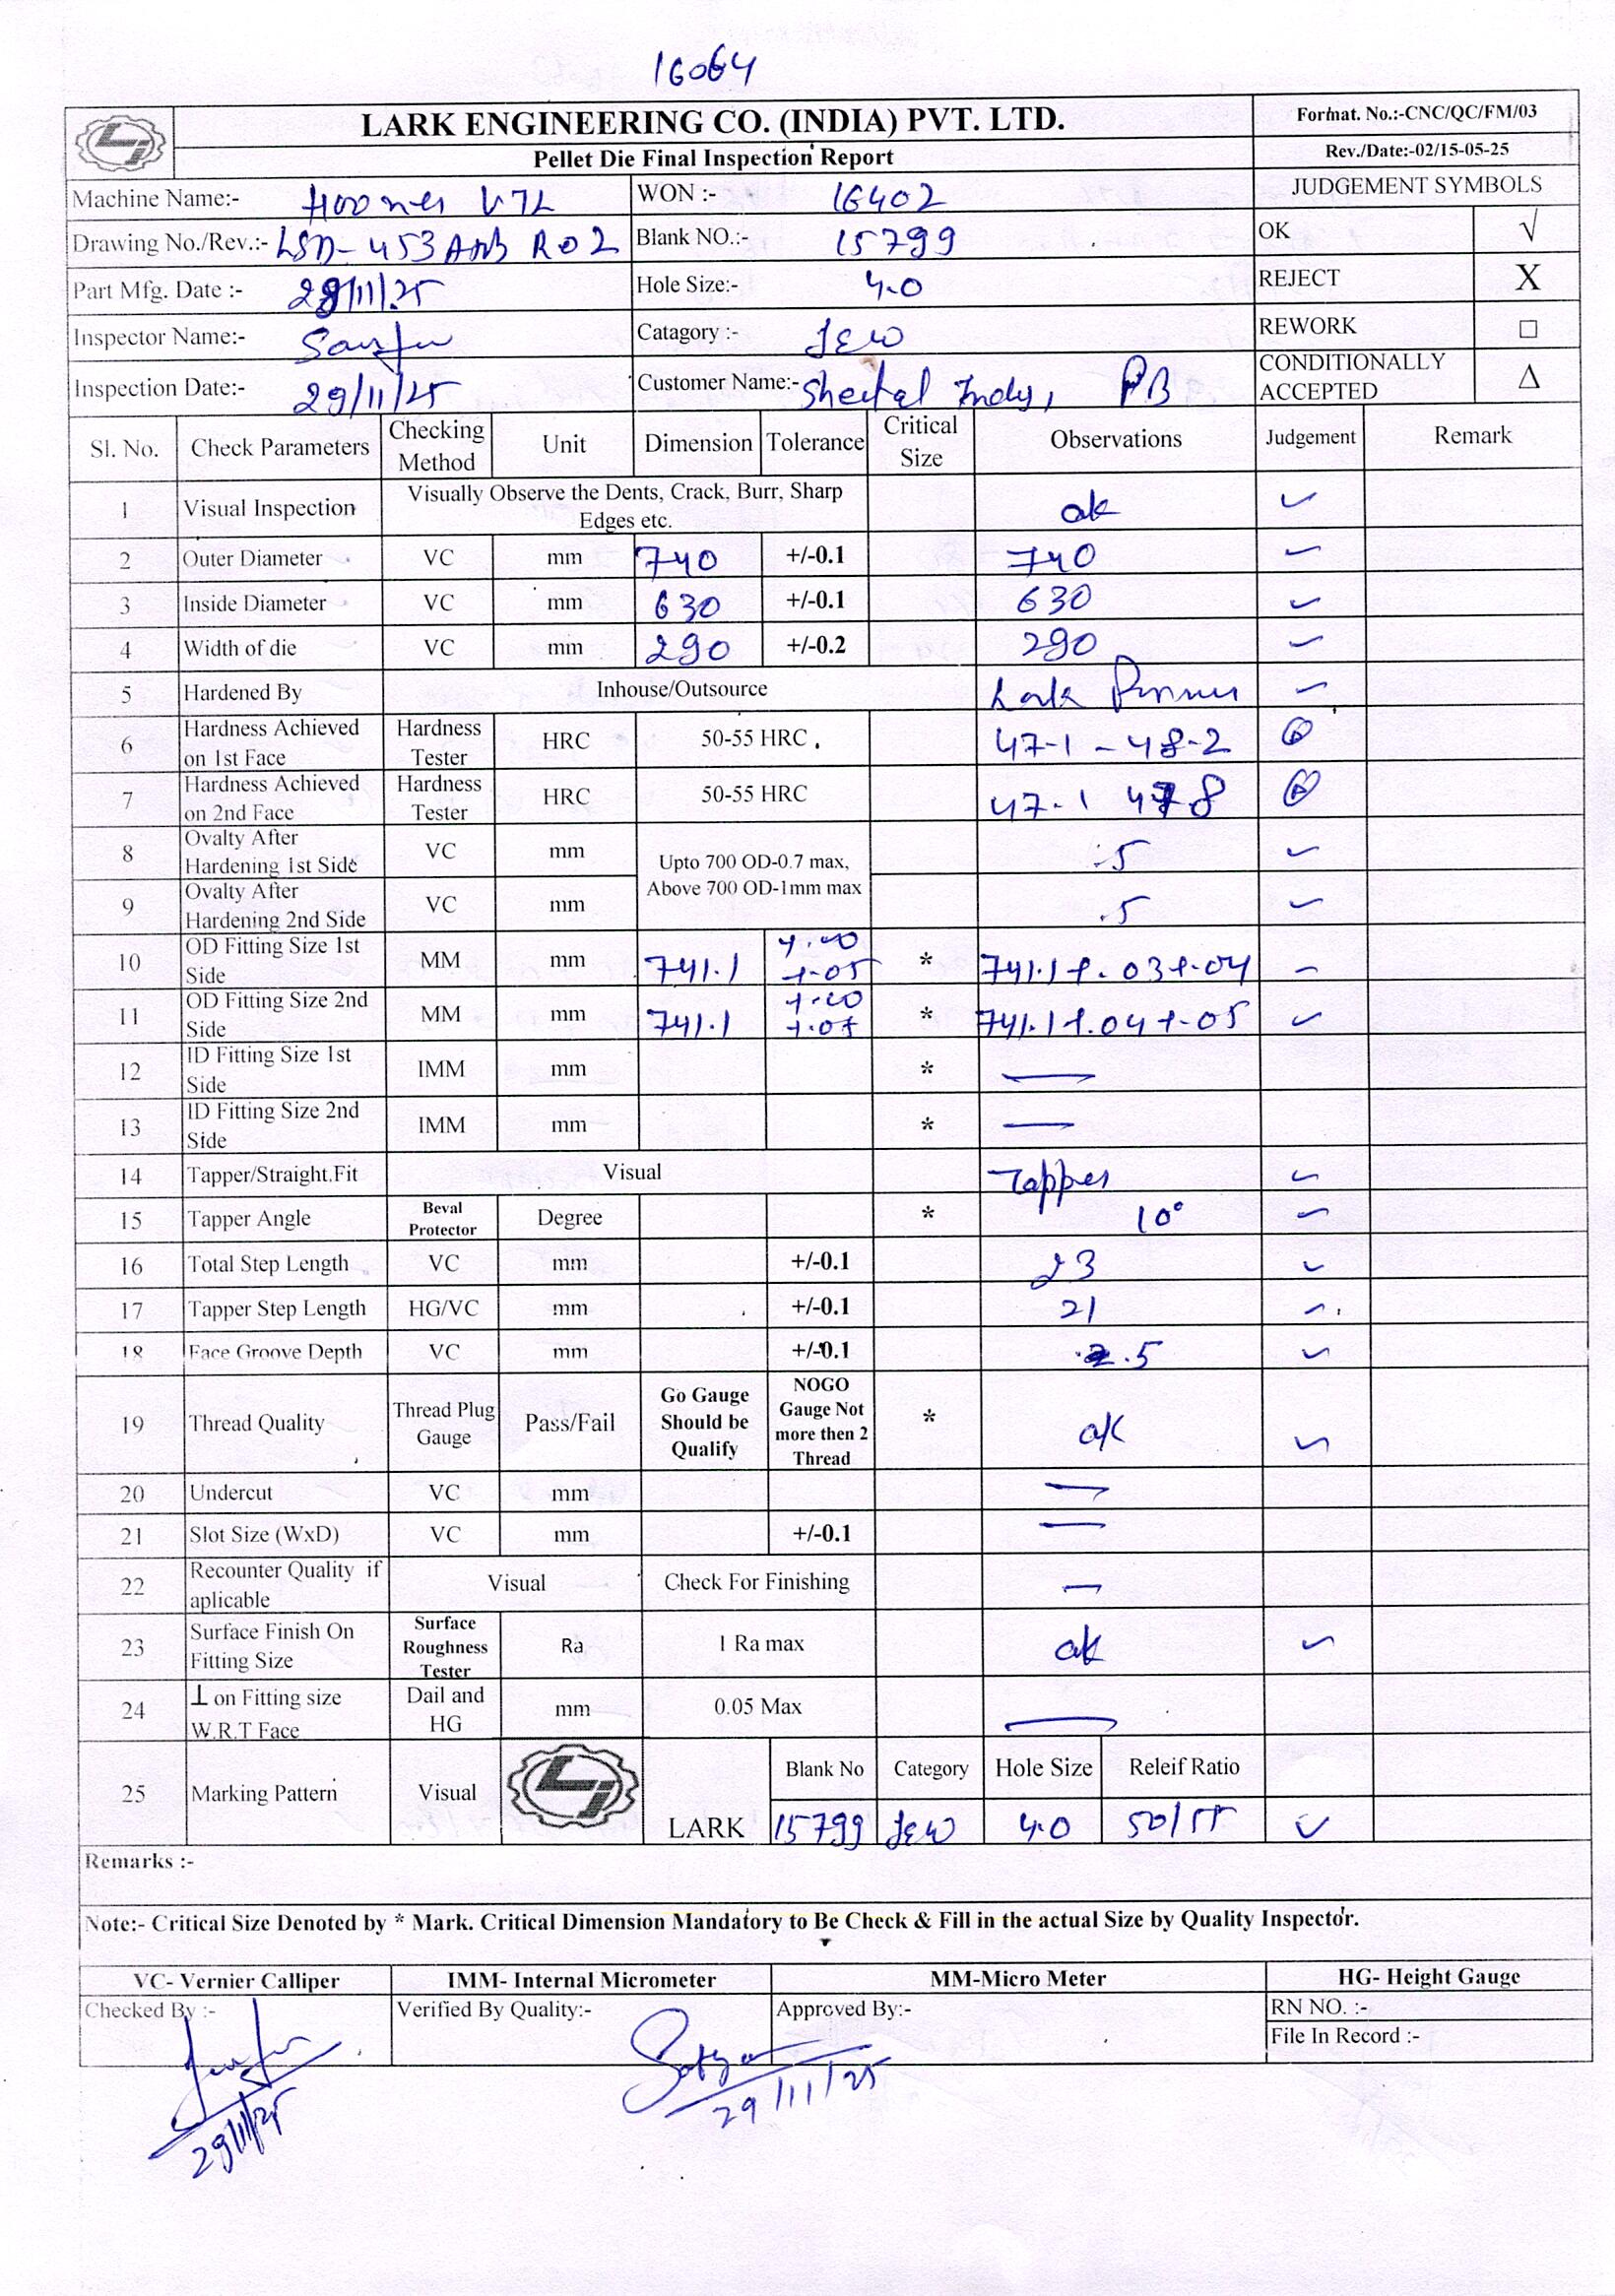 16064
LARK ENGINEERING CO. (INDIA) PVT. LTD.
Format. No.:-CNC/QC/FM/03
Pellet Die Final Inspection Report
Rev./Date:-02/15-05-25
Machine Name:- WON :- 16402 JUDGEMENT SYMBOLS
Drawing No./Rev.:- LSD-453 R02 Blank NO.:- 15799 OK √
Part Mfg. Date :- 28/11/25 Hole Size:- 4.0 REJECT X
Inspector Name:- Catagory :- REWORK □
Inspection Date:- 29/11/25 Customer Name:- Sheetal Indus, PB CONDITIONALLY ACCEPTED Δ
Sl. No. Check Parameters Checking Method Unit Dimension Tolerance Critical Size Observations Judgement Remark
1 Visual Inspection Visually Observe the Dents, Crack, Burr, Sharp Edges etc. ok ✓
2 Outer Diameter VC mm 740 +/-0.1 740 ✓
3 Inside Diameter VC mm 630 +/-0.1 630 ✓
4 Width of die VC mm 290 +/-0.2 290 ✓
5 Hardened By Inhouse/Outsource Lark ✓
6 Hardness Achieved on 1st Face Hardness Tester HRC 50-55 HRC 47-1 - 48-2
7 Hardness Achieved on 2nd Face Hardness Tester HRC 50-55 HRC 47-1
8 Ovalty After Hardening 1st Side VC mm Upto 700 OD-0.7 max, Above 700 OD-1mm max .5 ✓
9 Ovalty After Hardening 2nd Side VC mm .5 ✓
10 OD Fitting Size 1st Side MM mm 741.1 +.05 * 741.1+.03+.04 ✓
11 OD Fitting Size 2nd Side MM mm 741.1 * 741.1+.04+.05 ✓
12 ID Fitting Size 1st Side IMM mm * —
13 ID Fitting Size 2nd Side IMM mm * —
14 Tapper/Straight.Fit Visual Tapper ✓
15 Tapper Angle Beval Protector Degree * 10° ✓
16 Total Step Length VC mm +/-0.1 23 ✓
17 Tapper Step Length HG/VC mm +/-0.1 21 ✓
18 Face Groove Depth VC mm +/-0.1 2.5 ✓
19 Thread Quality Thread Plug Gauge Pass/Fail Go Gauge Should be Qualify NOGO Gauge Not more then 2 Thread * ok ✓
20 Undercut VC mm —
21 Slot Size (WxD) VC mm +/-0.1 —
22 Recounter Quality if aplicable Visual Check For Finishing —
23 Surface Finish On Fitting Size Surface Roughness Tester Ra 1 Ra max ok ✓
24 ⊥ on Fitting size W.R.T Face Dail and HG mm 0.05 Max —
25 Marking Pattern Visual LARK Blank No Category Hole Size Releif Ratio
15799 4.0 50/55 ✓
Remarks :-
Note:- Critical Size Denoted by * Mark. Critical Dimension Mandatory to Be Check & Fill in the actual Size by Quality Inspector.
VC- Vernier Calliper IMM- Internal Micrometer MM-Micro Meter HG- Height Gauge
Checked By :- Verified By Quality:- Approved By:- RN NO. :-
File In Record :-
29/11/25 29/11/25